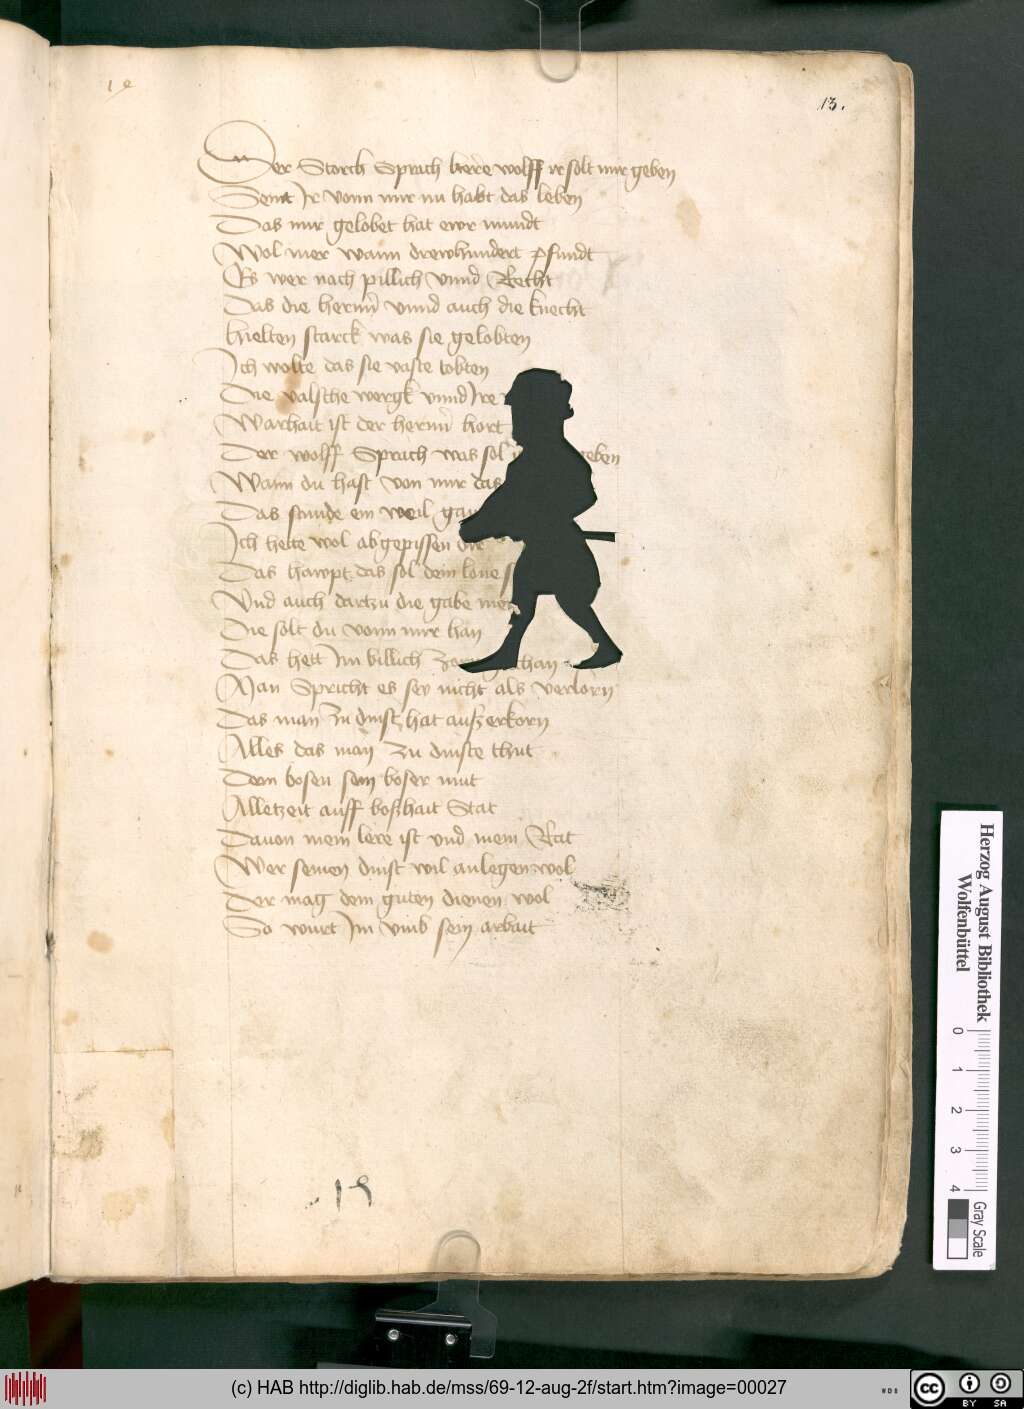 13.
Der Storch Sprach herre wolff ir solt mir geben
Seint Ir vonn mir nu habt das leben
Das mir gelobet hat ewr mundt
Wol mer wann drewhundert pfundt
Es wer noch pillich vnnd Recht
Das die herrnn vnnd auch die knecht
hielten starck was sie gelobten
Ich wolte das sie vaste tobten
Die valsche wergk vnnd Ire
Warhait ist der herrnn hort
Der wolff Sprach was sol geben
Wann du hast von mir das
Das stunde ein weil
Ich hette wol abgepissen die
Das hawpt das sol dem lone
Vnd auch dartzu die gabe
Die solt du vonn mir han
Das hett Im billich
Man Spricht es sey nicht als verlorn
Das man zu dinst hat außerkorn
Alles das man zu dinste thut
Dem bosen sein boser mut
Alletzeit auff boßhait Stat
Dauon mein lere ist vnd mein Rat
Wer seinen dinst wil anlegen wol
Der mag dem guten dienen wol
So wurt Im vmb sein arbait
Herzog August Bibliothek
Wolfenbüttel
0 1 2 3 4
Gray Scale
(c) HAB http://diglib.hab.de/mss/69-12-aug-2f/start.htm?image=00027
WDB
cc BY SA